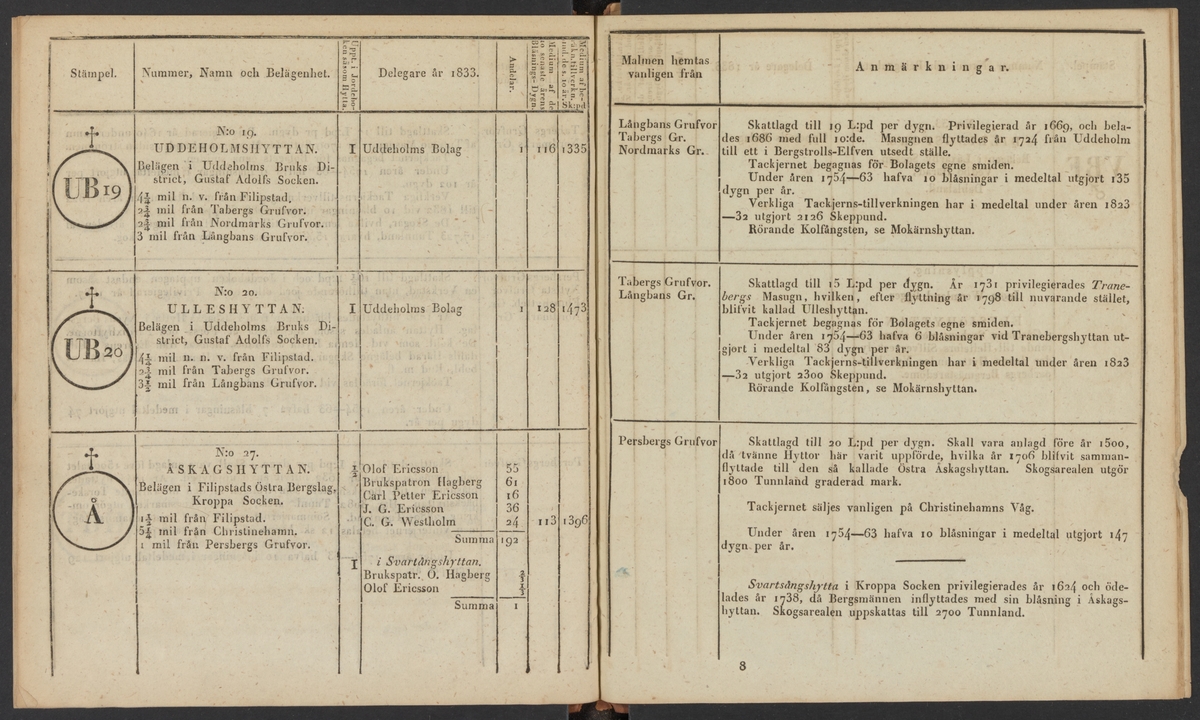 Stämpel.
Nummer, Namn och Belägenhet.
Uppt. i Jordebo-
ken såsom Hytta.
Delegare år 1833.
Andelar.
Medium af de
10 senaste årens
Blåsnings-Dygn.
Medium af be-
Skpd
UB 19
N:o 19.
UDDEHOLMSHYTTAN.
Belägen i Uddeholms Bruks Di-
strict, Gustaf Adolfs Socken.
4½ mil n. v. från Filipstad.
2¾ mil från Tabergs Grufvor.
2¾ mil från Nordmarks Grufvor.
3 mil från Långbans Grufvor.
1 Uddeholms Bolag 1 116 1335
UB 20
N:o 20.
ULLESHYTTAN.
Belägen i Uddeholms Bruks Di-
strict, Gustaf Adolfs Socken.
4½ mil n. n. v. från Filipstad.
2¾ mil från Tabergs Grufvor.
3½ mil från Långbans Grufvor.
1 Uddeholms Bolag 1 128 1473
Å
N:o 27.
ÅSKAGSHYTTAN.
Belägen i Filipstads Östra Bergslag,
Kroppa Socken.
1½ mil från Filipstad.
5¼ mil från Christinehamn.
1 mil från Persbergs Grufvor.
½ Olof Ericsson 55
Brukspatron Hagberg 61
Carl Petter Ericsson 16
J. G. Ericsson 36
C. G. Westholm 24 113 1396
Summa 192
1 i Svartångshyttan.
Brukspatr. O. Hagberg ⅔
Olof Ericsson ⅓
Summa 1
Malmen hemtas
vanligen från
Anmärkningar.
Långbans Grufvor
Tabergs Gr.
Nordmarks Gr.
Skattlagd till 19 L:pd per dygn. Privilegierad år 1669, och bela-
des 1686 med full 10:de. Masugnen flyttades år 1724 från Uddeholm
till ett i Bergstrolls-Elfven utsedt ställe.
Tackjernet begagnas för Bolagets egne smiden.
Under åren 1754—63 hafva 10 blåsningar i medeltal utgjort 135
dygn per år.
Verkliga Tackjerns-tillverkningen har i medeltal under åren 1823
—32 utgjort 2126 Skeppund.
Rörande Kolfångsten, se Mokärnshyttan.
Tabergs Grufvor.
Långbans Gr.
Skattlagd till 15 L:pd per dygn. År 1731 privilegierades Trane-
bergs Masugn, hvilken, efter flyttning år 1798 till nuvarande stället,
blifvit kallad Ulleshyttan.
Tackjernet begagnas för Bolagets egne smiden.
Under åren 1754—63 hafva 6 blåsningar vid Tranebergshyttan ut-
gjort i medeltal 83 dygn per år.
Verkliga Tackjerns-tillverkningen har i medeltal under åren 1823
—32 utgjort 2300 Skeppund.
Rörande Kolfångsten, se Mokärnshyttan.
Persbergs Grufvor
Skattlagd till 20 L:pd per dygn. Skall vara anlagd före år 1500,
då tvänne Hyttor här varit uppförde, hvilka år 1706 blifvit samman-
flyttade till den så kallade Östra Åskagshyttan. Skogsarealen utgör
1800 Tunnland graderad mark.
Tackjernet säljes vanligen på Christinehamns Våg.
Under åren 1754—63 hafva 10 blåsningar i medeltal utgjort 147
dygn per år.
Svartsångshytta i Kroppa Socken privilegierades år 1624 och öde-
lades år 1738, då Bergsmännen inflyttades med sin blåsning i Åskags-
hyttan. Skogsarealen uppskattas till 2700 Tunnland.
8